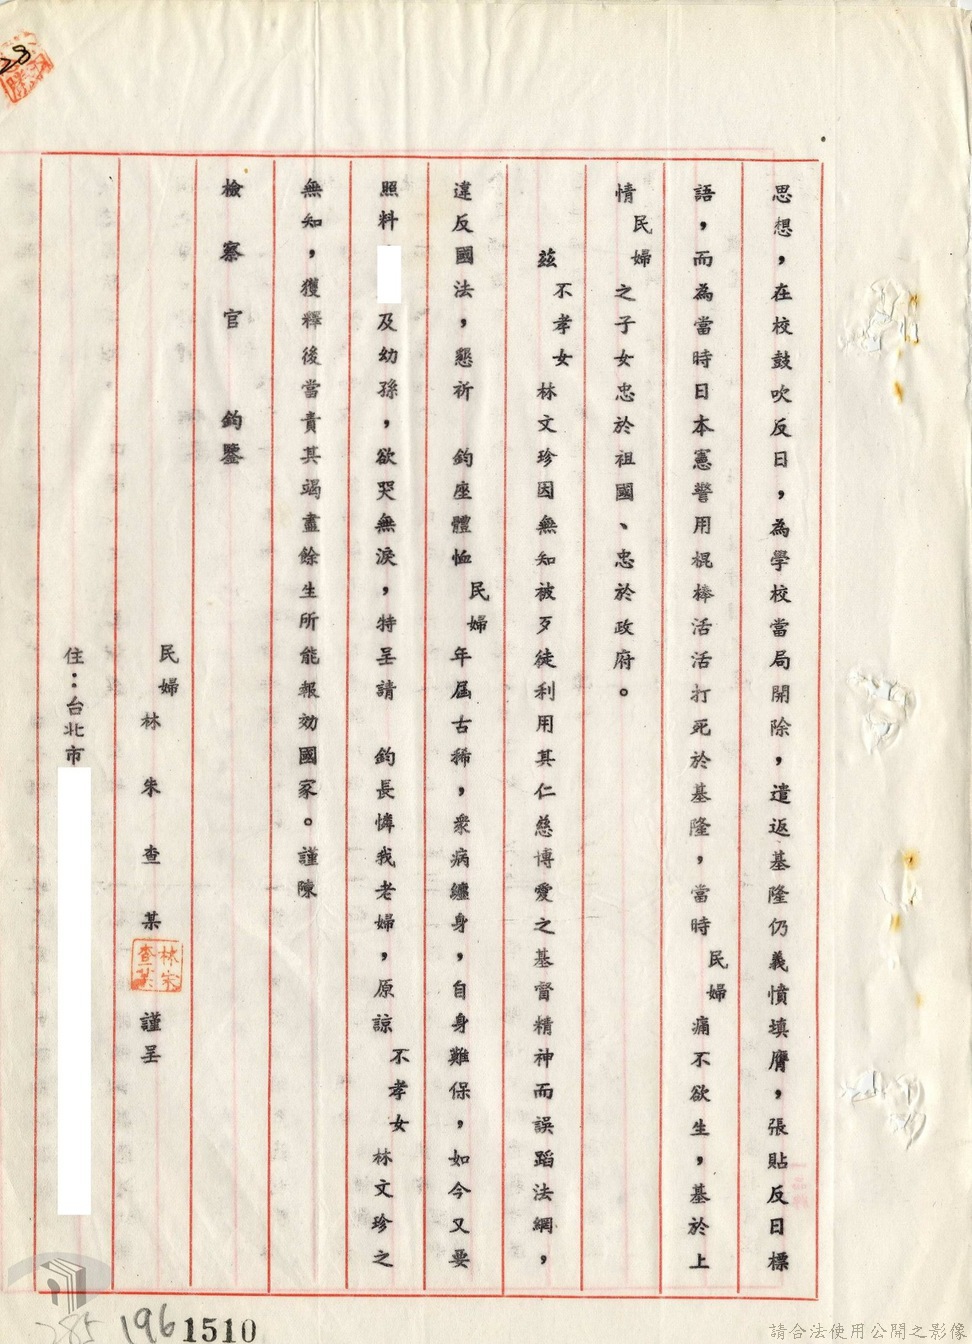 思想，在校鼓吹反日，為學校當局開除，遣返基隆仍義憤填膺，張貼反日標
語，而為當時日本憲警用棍棒活活打死於基隆，當時民婦痛不欲生，基於上
情民婦之子女忠於祖國、忠於政府。
茲不孝女林文珍因無知被歹徒利用其仁慈博愛之基督精神而誤蹈法網，
違反國法，懇祈　鈞座體恤民婦年屆古稀，衆病纏身，自身難保，如今又要
照料　及幼孫，欲哭無淚，特呈請　鈞長憐我老婦，原諒不孝女林文珍之
無知，獲釋後當責其竭盡餘生所能報効國家。謹陳
檢察官　鈞鑒
民婦林朱查某　謹呈
住：台北市
28
196 1510
285
請合法使用公開之影像